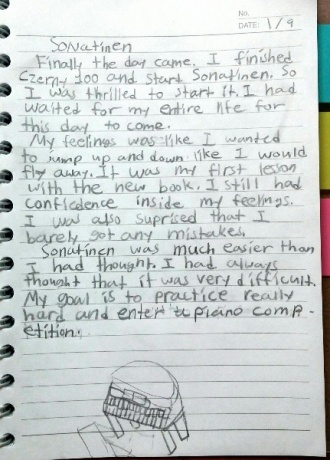 No.
DATE: 1/9
Sonatinen
Finally the day came. I finished
Czerny 100 and start Sonatinen. So
I was thrilled to start it. I had
waited for my entire life for
this day to come.
My feelings was like I wanted
to jump up and down like I would
fly away. It was my first lesion
with the new book. I still had
conficdence inside my feelings.
I was also suprised that I
barely got any mistakes.
Sonatinen was much easier than
I had thought. I had always
thought that it was very difficult.
My goal is to practice really
hard and enter a piano comp-
etition.